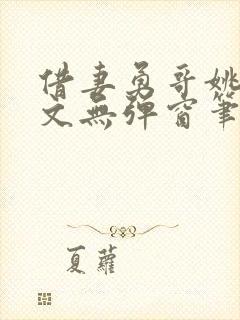 借妻勇哥姚
文無彈窗筆
夏蘿